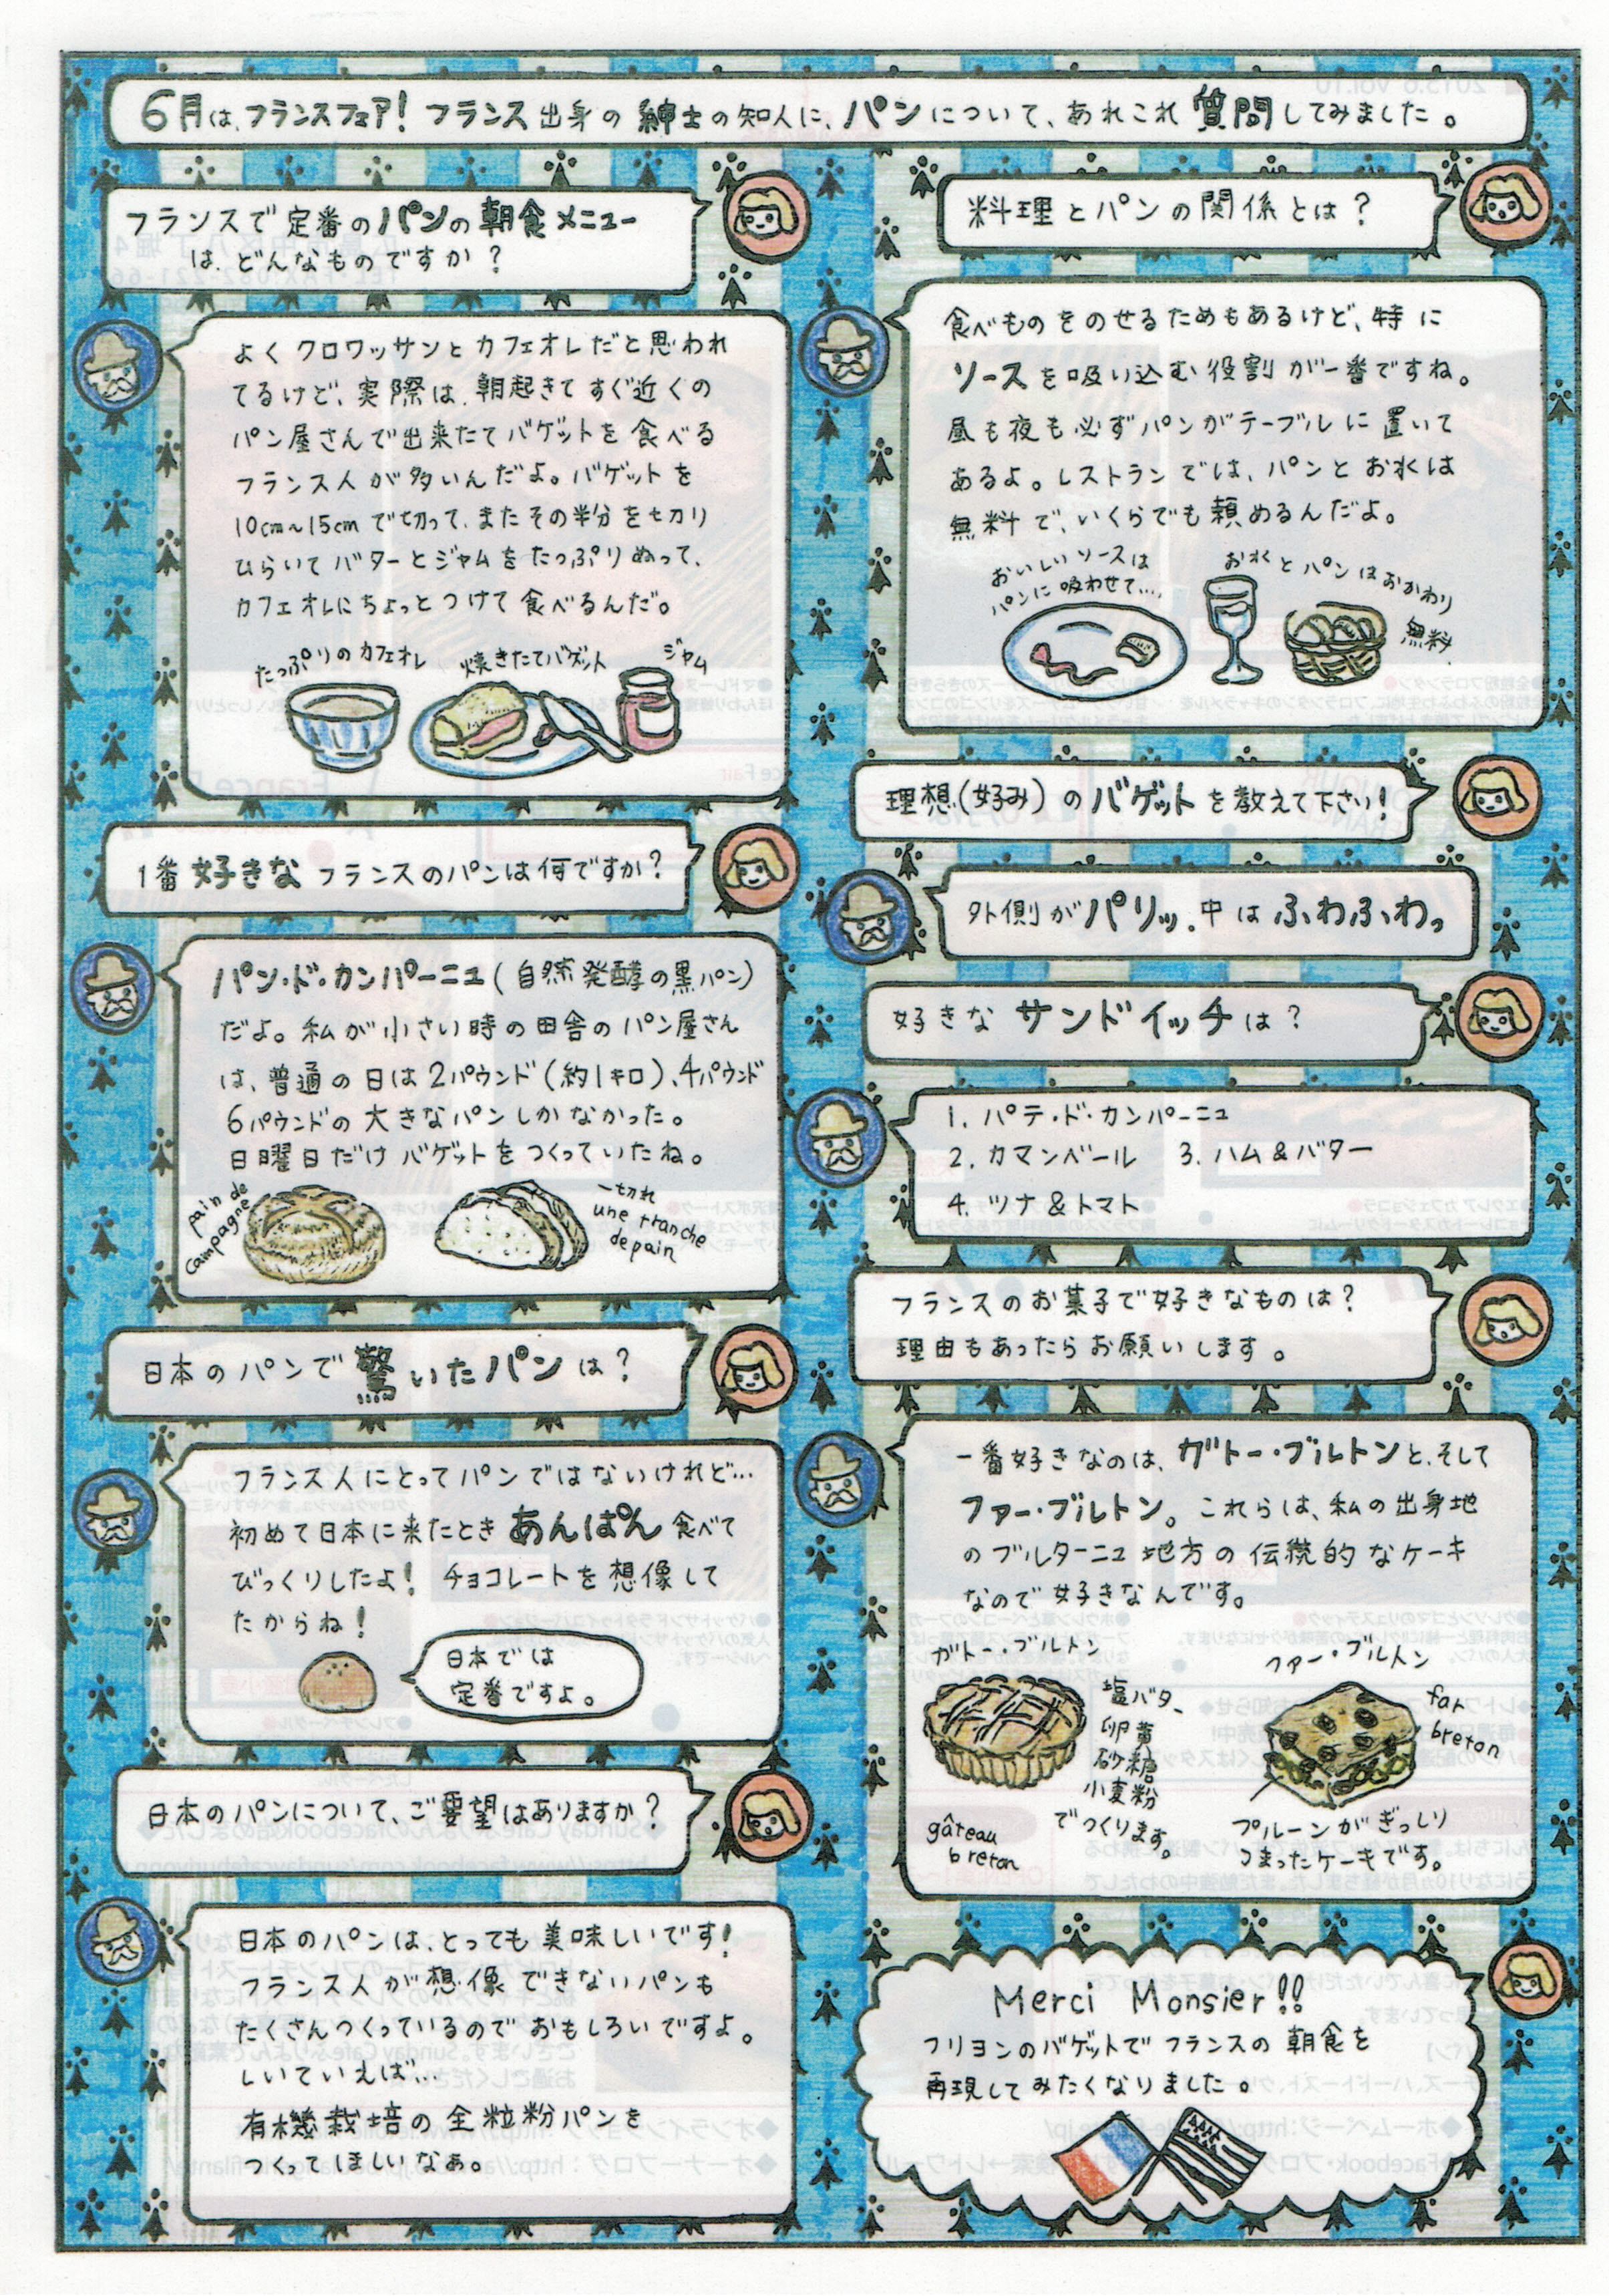 6月は、フランスフェア！フランス出身の紳士の知人に、パンについて、あれこれ質問してみました。
フランスで定番のパンの朝食メニュー
は、どんなものですか？
よくクロワッサンとカフェオレだと思われ
てるけど、実際は、朝起きてすぐ近くの
パン屋さんで出来たてバゲットを食べる
フランス人が多いんだよ。バゲットを
10cm~15cmで切って、またその半分を切り
ひらいてバターとジャムをたっぷりぬって、
カフェオレにちょっとつけて食べるんだ。
たっぷりのカフェオレ
焼きたてバゲット
ジャム
1番好きなフランスのパンは何ですか？
パン・ド・カンパーニュ(自然発酵の黒パン)
だよ。私が小さい時の田舎のパン屋さん
は、普通の日は2パウンド(約1キロ)、4パウンド
6パウンドの大きなパンしかなかった。
日曜日だけバゲットをつくっていたね。
pain de
campagne
一切れ
une tranche
de pain
日本のパンで驚いたパンは？
フランス人にとってパンではないけれど…
初めて日本に来たときあんぱん食べて
びっくりしたよ！チョコレートを想像して
たからね！
日本では
定番ですよ。
日本のパンについて、ご要望はありますか？
日本のパンは、とっても美味しいです！
フランス人が想像できないパンも
たくさんつくっているのでおもしろいですよ。
しいていえば…
有機栽培の全粒粉パンを
つくってほしいなぁ。
料理とパンの関係とは？
食べものをのせるためもあるけど、特に
ソースを吸い込む役割が一番ですね。
昼も夜も必ずパンがテーブルに置いて
あるよ。レストランでは、パンとお水は
無料で、いくらでも頼めるんだよ。
おいしいソースは
パンに吸わせて....
お水とパンはおかわり
無料
理想(好み)のバゲットを教えて下さい！
外側がパリッ、中はふわふわっ
好きなサンドイッチは？
1. パテ・ド・カンパーニュ
2. カマンベール 3. ハム＆バター
4. ツナ＆トマト
フランスのお菓子で好きなものは？
理由もあったらお願いします。
一番好きなのは、ガトー・ブルトンと、そして
ファー・ブルトン。これらは、私の出身地
のブルターニュ地方の伝統的なケーキ
なので好きなんです。
ガトー・ブルトン
塩バター、
卵黄
砂糖
小麦粉
でつくります。
gâteau
breton
ファー・ブルトン
far
breton
プルーンがぎっしり
つまったケーキです。
Merci Monsier!!
フリヨンのバゲットでフランスの朝食を
再現してみたくなりました。